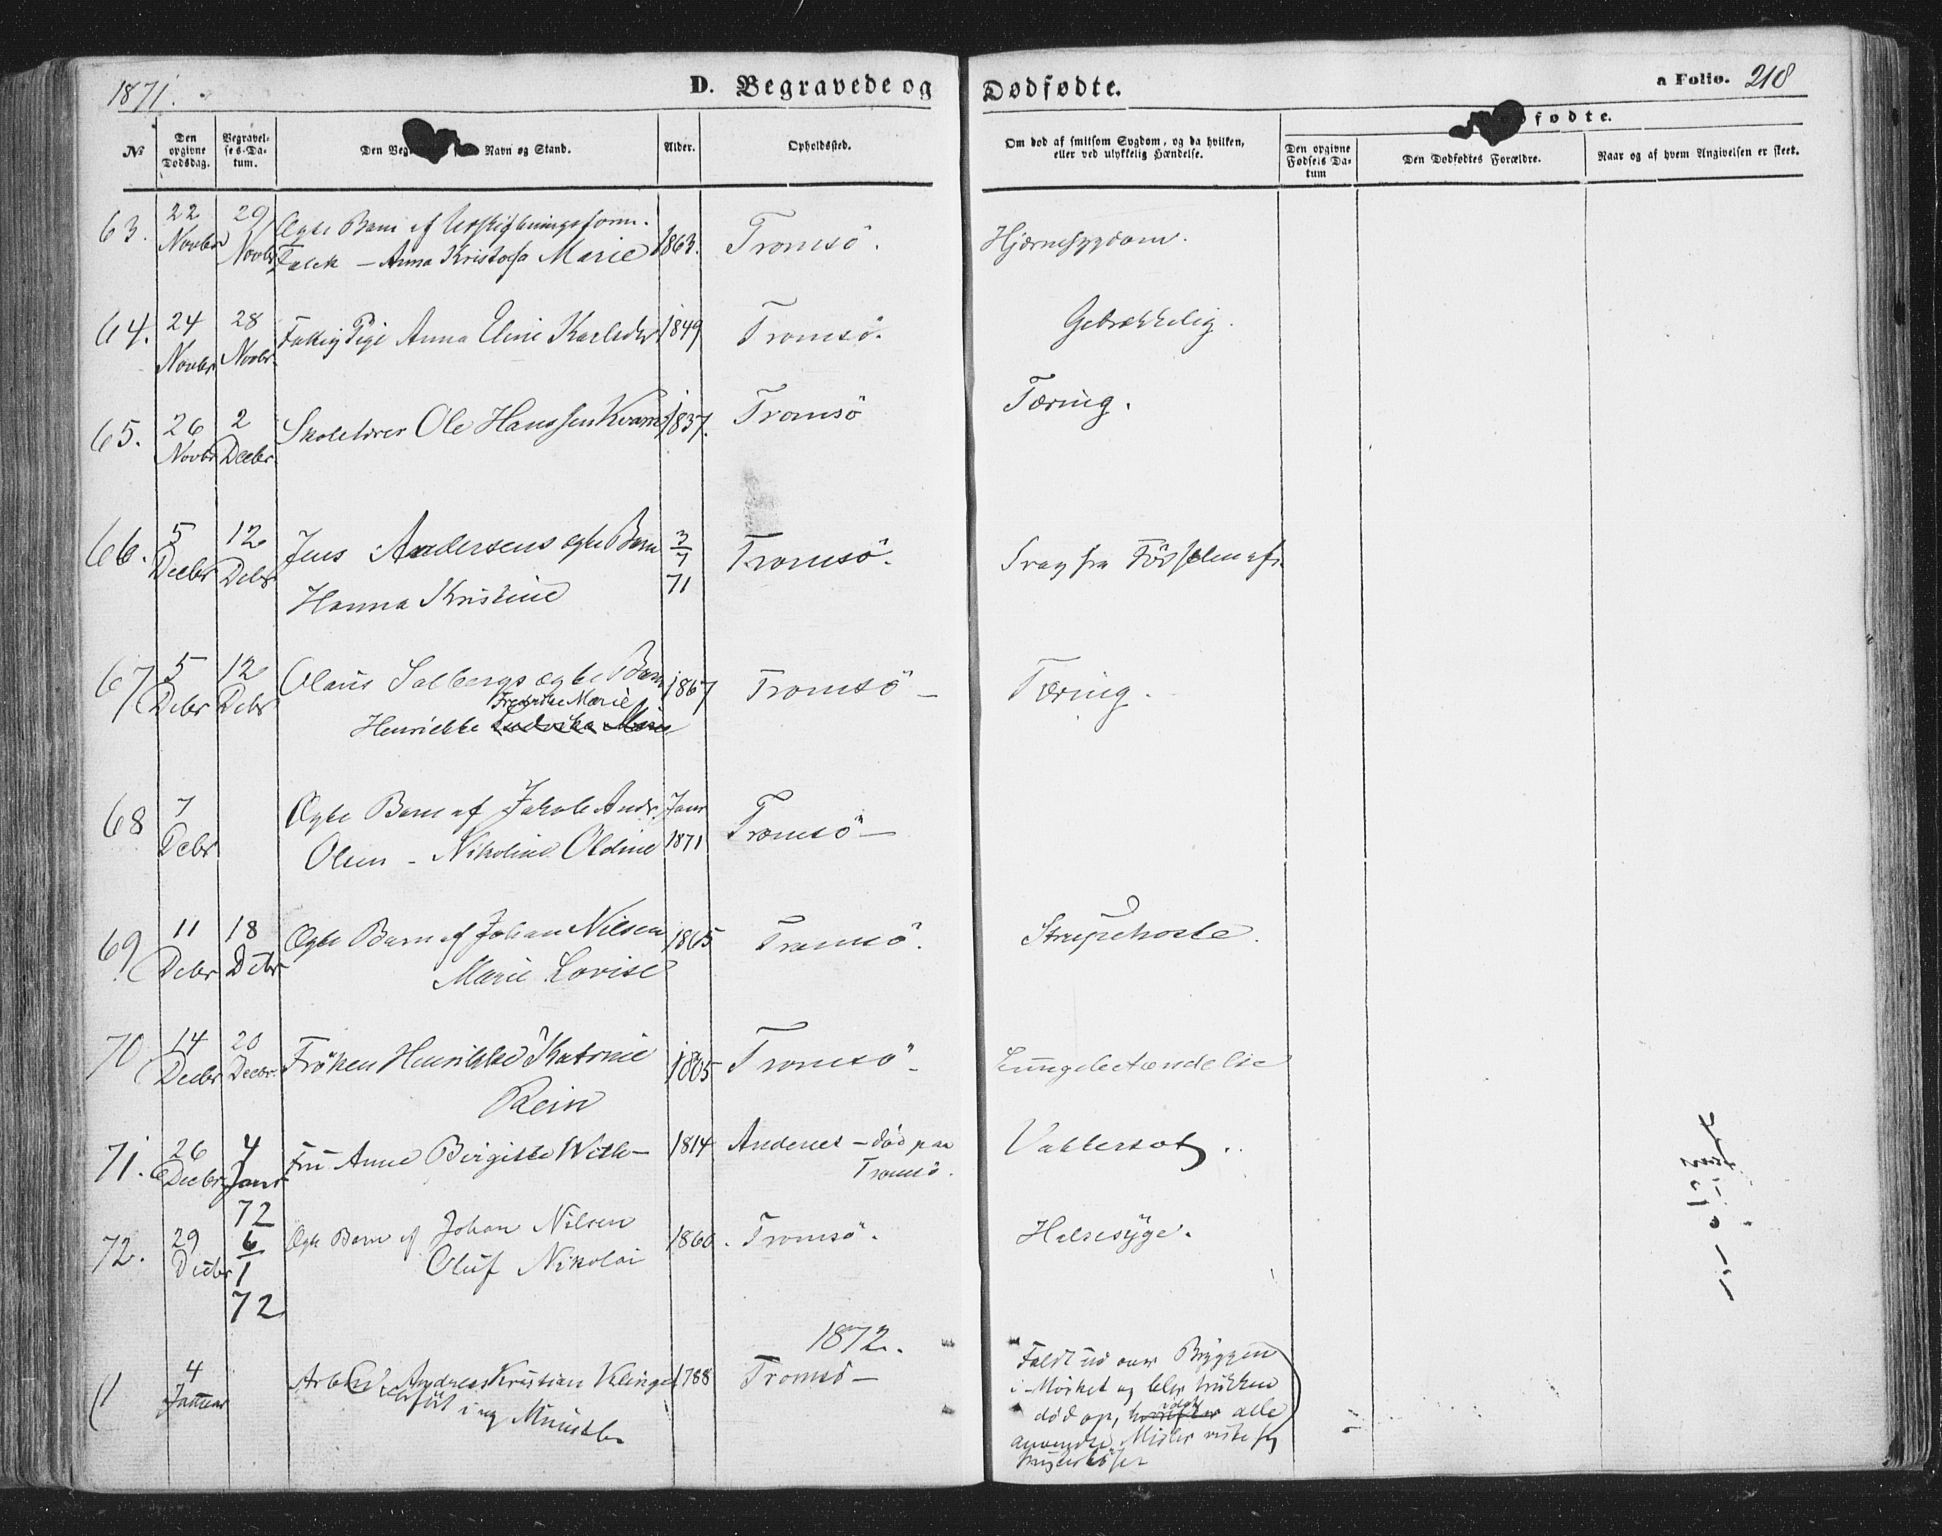 1871.
D. Begravede og Dødfødte.
a Folio. 218
№
Den opgivne Dødsdag.
Begravelses-Datum.
Den Beg Navn og Stand.
Alder.
Opholdssted.
Om død af smitsom Sygdom, og da hvilken, eller ved ulykkelig Hændelse.
fødte.
Den opgivne Fødsels Datum
Den Dødfødtes Forældre.
Naar og af hvem Angivelsen er skeet.
63. 22 Novbr 29 Novbr Ægte Barn af
Falck – Anna Kristofa Marie 1863. Tromsö. Hjernesygdom.
64. 24 Novbr 28 Novbr Fattig Pige Anna Eline Karlsdtr 1849 Tromsö. Gebrækkelig.
65. 26 Novbr 2 Decbr Skolelærer Ole Hanssen Kvam 1837. Tromsö Tæring.
66. 5 Decbr 12 Debr Jens Andersens ægte Barn 3/7 71 Tromsö. Svag fra Födselen af.
Hanna Kristine
67 5 Debr 12 Debr Olaus Solbergs ægte Barn 1867 Tromsö – Tæring.
Fredrikke Marie
Henrikke
68 7 Debr Ægte Barn af Jakob Andr. Janr 1871 Tromsö –
Olsen – Nikoline Oldine
69 11 Debr 18 Debr Ægte Barn af Johan Nilsen 1865 Tromsö. Strupehoste.
Marie Lovise
70. 14 Decbr 20 Decbr. Fröken Henrikke Katrine 1805 Tromsö – Lungebetændelse
Rein
71. 26 Decbr 4 Janr 72 Fru Anne Birgitte With – 1814 Andenes – död paa Tromsö. Vattersot.
72. 29 Decbr 6/1 72 Ægte Barn af Johan Nilsen 1860. Tromsö. Halsesyge.
Oluf Nikolai
1872.
1 4 Januar Arbeid. Andreas Kristian Klinge 1788 Tromsö – Faldt ud over Bryggen
i Mörket og blev trukken
död op, alle
anvendte Midler viste sig
frugteslöse